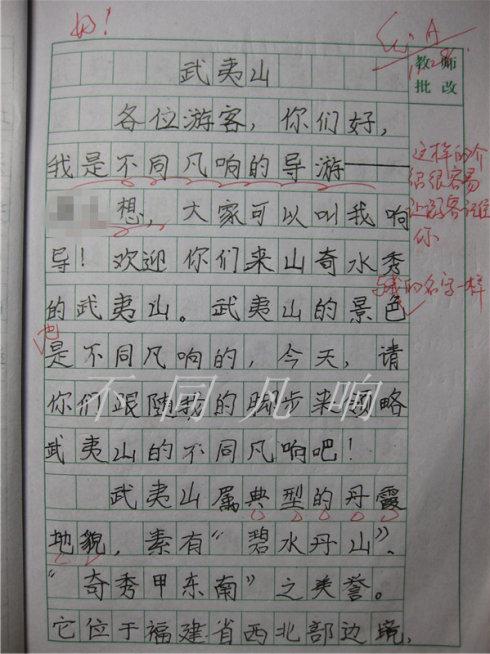 好！
A
教师
批改
武夷山
各位游客，你们好，
我是不同凡响的导游——
想，大家可以叫我响
导！欢迎你们来山奇水秀
的武夷山。武夷山的景色
是不同凡响的，今天，请
你们跟随我的脚步来领略
武夷山的不同凡响吧！
武夷山属典型的丹霞
地貌，素有“碧水丹山”、
“奇秀甲东南”之美誉。
它位于福建省西北部边境，
这样的介
绍很容易
让游客记住
你
与我的名字一样
也
不同凡响